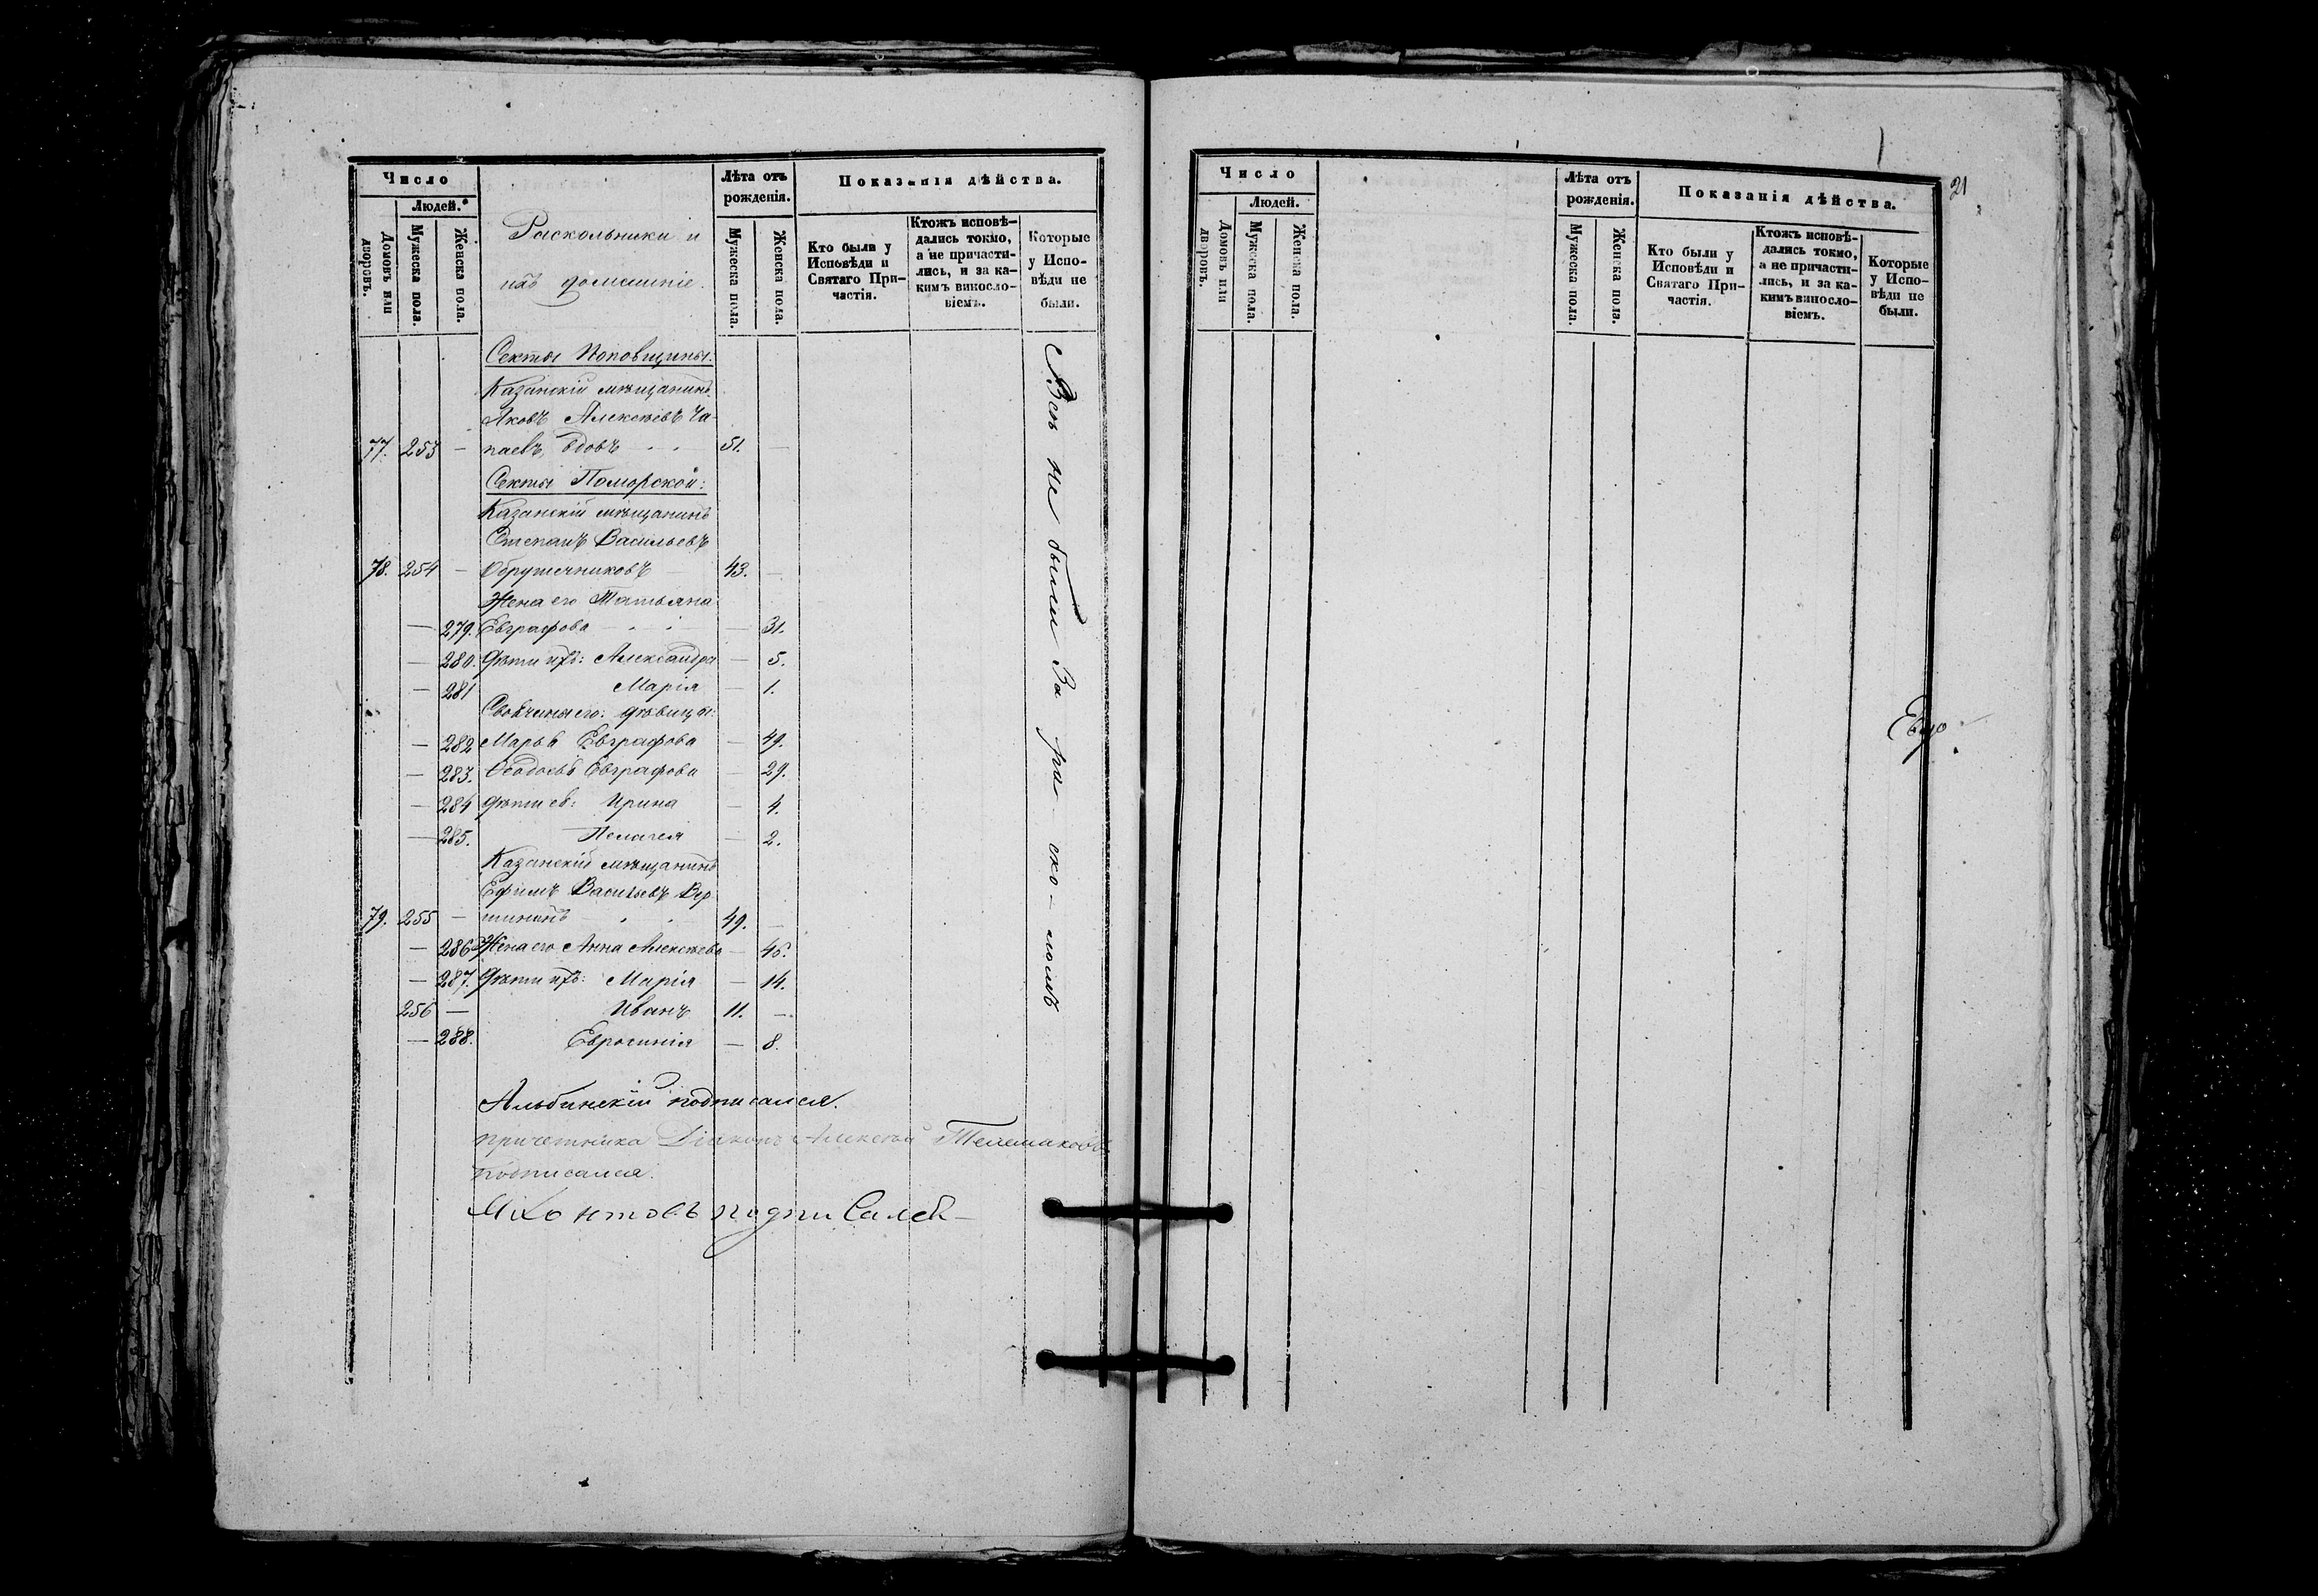 Число
Людей.
Домовъ или дворовъ.
Мужеска пола.
Женска пола.
Раскольники и
ихъ домашніе.
Лѣта отъ рожденія.
Мужеска пола.
Женска пола.
Показанія дѣйства.
Кто были у Исповѣди и Святаго Причастія.
Ктожъ исповѣдались токмо, а не причастились, и за какимъ винословіемъ.
Которые у Исповѣди не были.
Секты Поповщины:
Казанскій мѣщанинъ
Яковъ Алексѣевъ Ча-
77. 253 — паевъ, вдовъ 51. —
Секты Поморской:
Казанскій мѣщанинъ
Степанъ Васильевъ
78. 254 — Обрушниковъ 43. —
Жена его Татьяна
— 279. Евграфова — 31.
— 280. Дѣти ихъ: Александра — 5.
— 281 Марія — 1.
Своячины его: дѣвицы:
— 282 Марья Евграфова — 49.
— 283. Ѳеодосья Евграфова — 29.
— 284 Дѣти ея: Ирина — 4.
— 285. Пелагея — 2.
Казанскій мѣщанинъ
Ефимъ Васильевъ Вер-
79. 255 — шининъ 49. —
— 286 Жена его Анна Алексѣева — 46.
— 287. Дѣти ихъ: Марія — 14.
256 — Иванъ 11. —
— 288. Евросинія — 8.
Всѣ не были За рас-ко-ломъ
Альбинскій подписался.
причетника Діаконъ Алексѣй Телемаковъ
подписался.
подписалсѧ
21
Число
Людей.
Домовъ или дворовъ.
Мужеска пола.
Женска пола.
Лѣта отъ рожденія.
Мужеска пола.
Женска пола.
Показанія дѣйства.
Кто были у Исповѣди и Святаго Причастія.
Ктожъ исповѣдались токмо, а не причастились, и за какимъ винословіемъ.
Которые у Исповѣди не были.